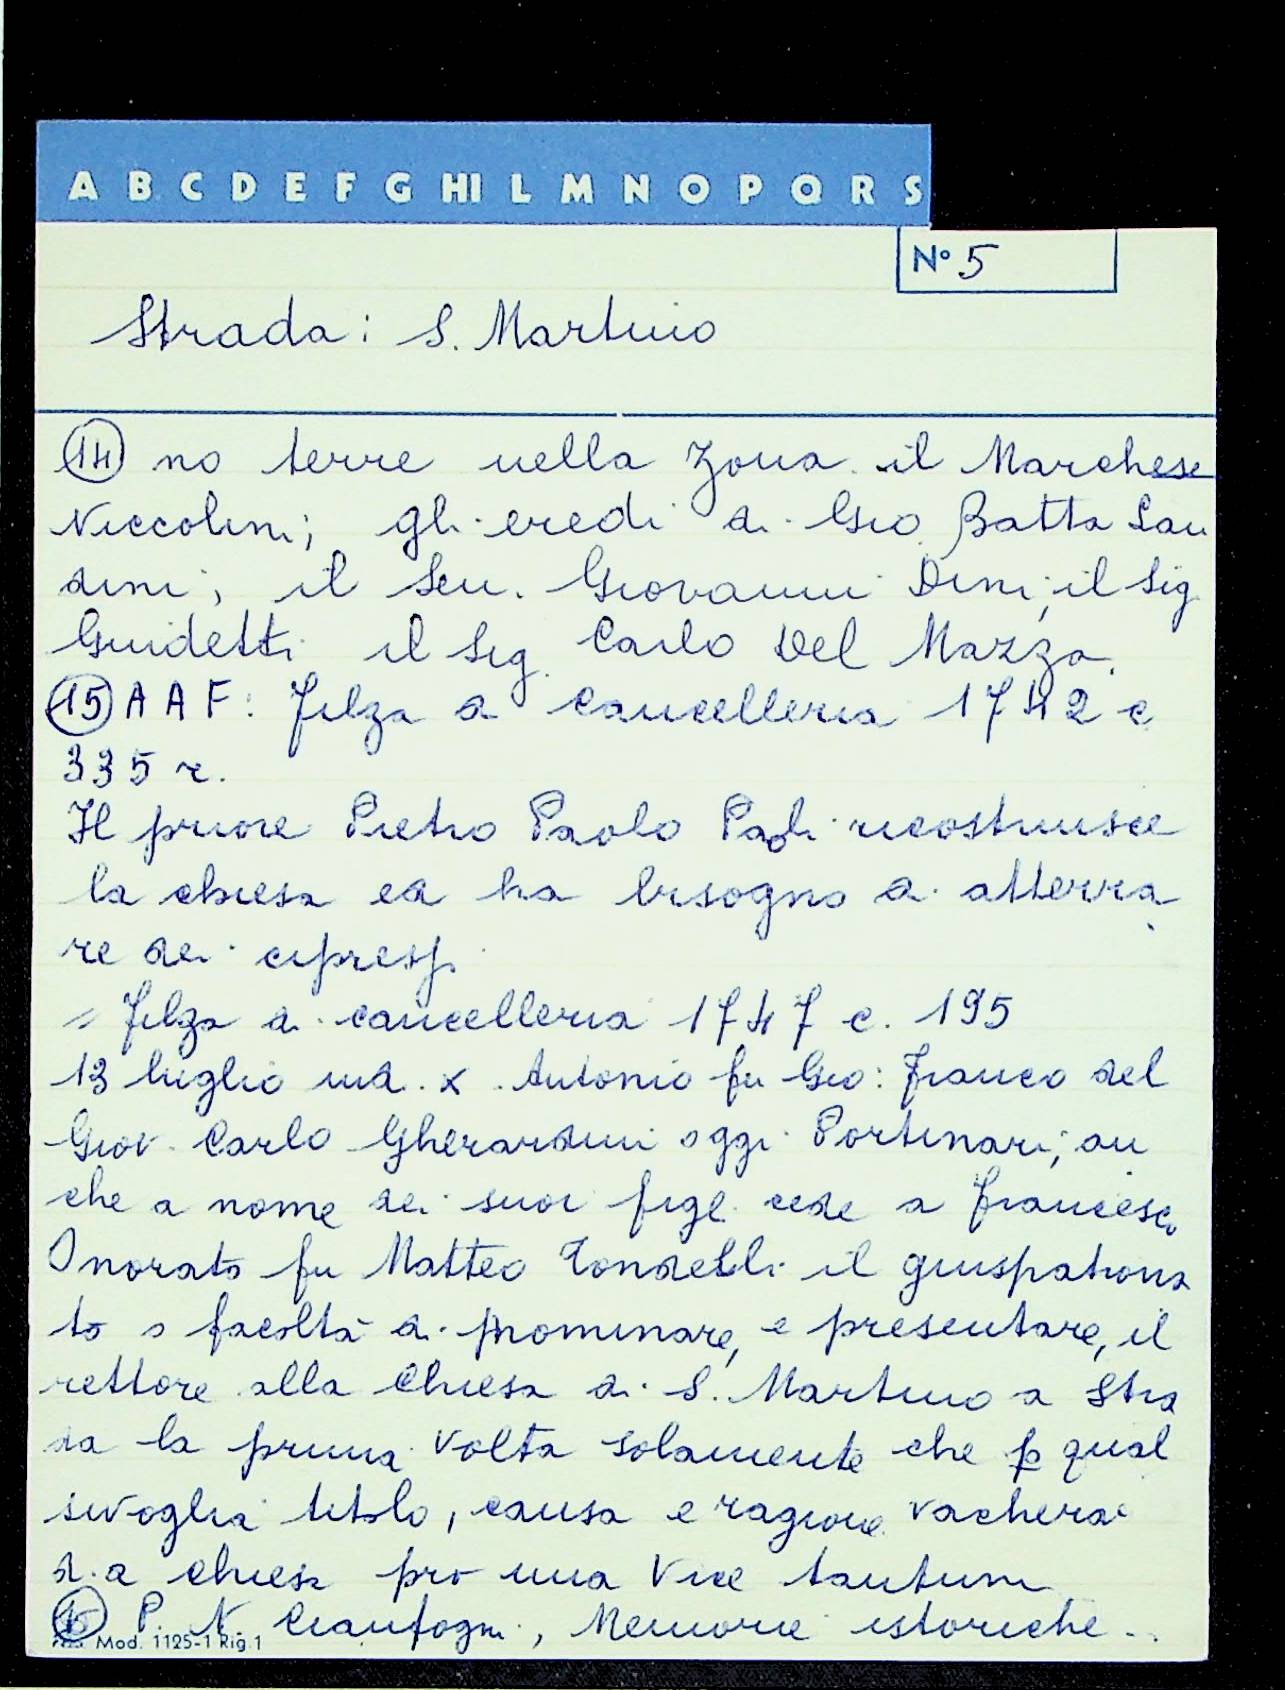 A B C D E F G HI L M N O P Q R S
N° 5
Strada: S. Martino
14 no terre nella zona il Marchese
Niccolini; gli eredi di Gio Batta Lan
dini; il Sen. Giovanni Dini; il Sig
Guidetti il Sig. Carlo Del Mazza.
15 A A F: Filza di Cancelleria 1742 c
335 r.
Il priore Pietro Paolo Paoli ricostruisce
la chiesa ed ha bisogno di atterra
re dei cipressi
= Filza di cancelleria 1747 c. 195
13 luglio ind. X. Antonio fu Gio: Franco del
Giov. Carlo Gherardini oggi Portinari, an
che a nome dei suoi figl. cede a Francesco
Onorato fu Matteo Tondelli il giuspatrona
to o facoltà di nominare, e presentare, il
rettore alla Chiesa di S. Martino a Stra
da la prima volta solamente che p qual
sivoglia titolo, causa e ragione vacherà
d.a chiesa pro una vice tantum
P. N. Cianfogni, Memorie istoriche...
Mod. 1125-1 Rig. 1